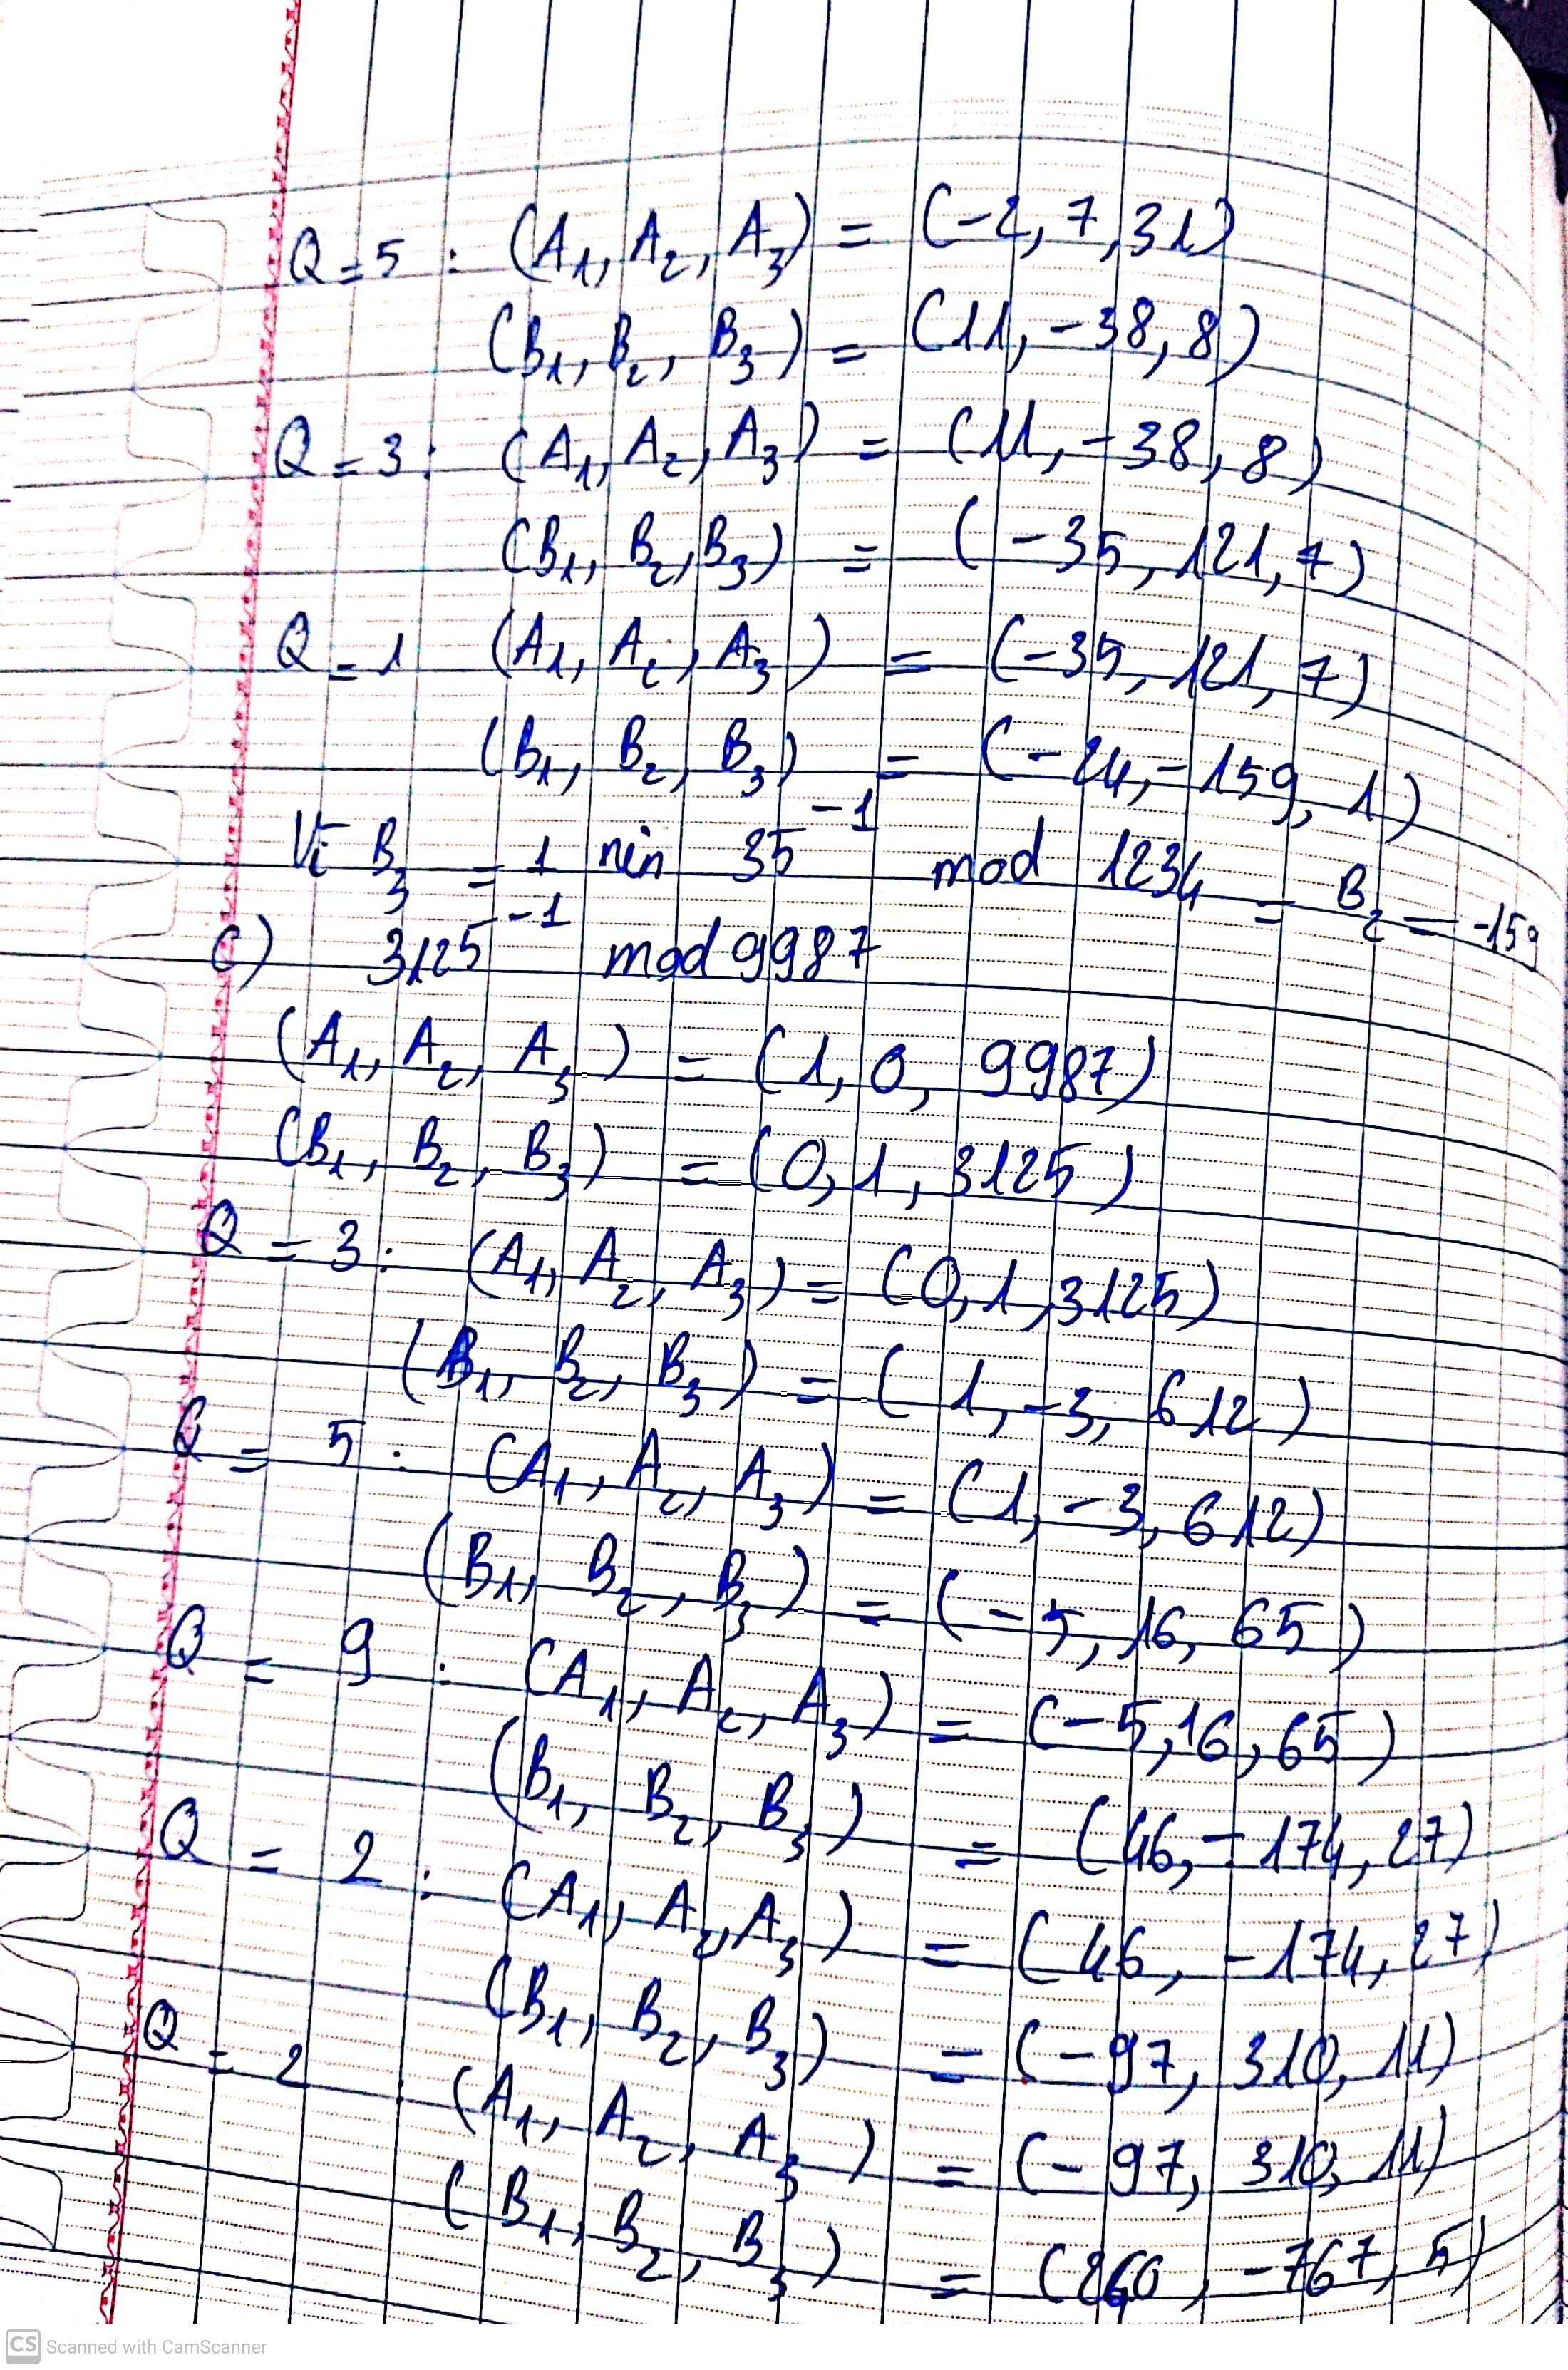 Q = 5 : (A₁, A₂, A₃) = (-2, 7, 31)
(B₁, B₂, B₃) = (11, -38, 8)
Q = 3 : (A₁, A₂, A₃) = (11, -38, 8)
(B₁, B₂, B₃) = (-35, 121, 7)
Q = 1 (A₁, A₂, A₃) = (-35, 121, 7)
(B₁, B₂, B₃) = (-24, -159, 1)
Vì B₃ = 1 nên 35⁻¹ mod 1234 = B₂ = -159
c) 3125⁻¹ mod 9987
(A₁, A₂, A₃) = (1, 0, 9987)
(B₁, B₂, B₃) = (0, 1, 3125)
Q = 3 : (A₁, A₂, A₃) = (0, 1, 3125)
(B₁, B₂, B₃) = (1, -3, 612)
Q = 5 : (A₁, A₂, A₃) = (1, -3, 612)
(B₁, B₂, B₃) = (-5, 16, 65)
Q = 9 : (A₁, A₂, A₃) = (-5, 16, 65)
(B₁, B₂, B₃) = (46, -174, 27)
Q = 2 : (A₁, A₂, A₃) = (46, -174, 27)
(B₁, B₂, B₃) = (-97, 310, 11)
Q = 2 : (A₁, A₂, A₃) = (-97, 310, 11)
(B₁, B₂, B₃) = (240, -767, 5)
CS Scanned with CamScanner